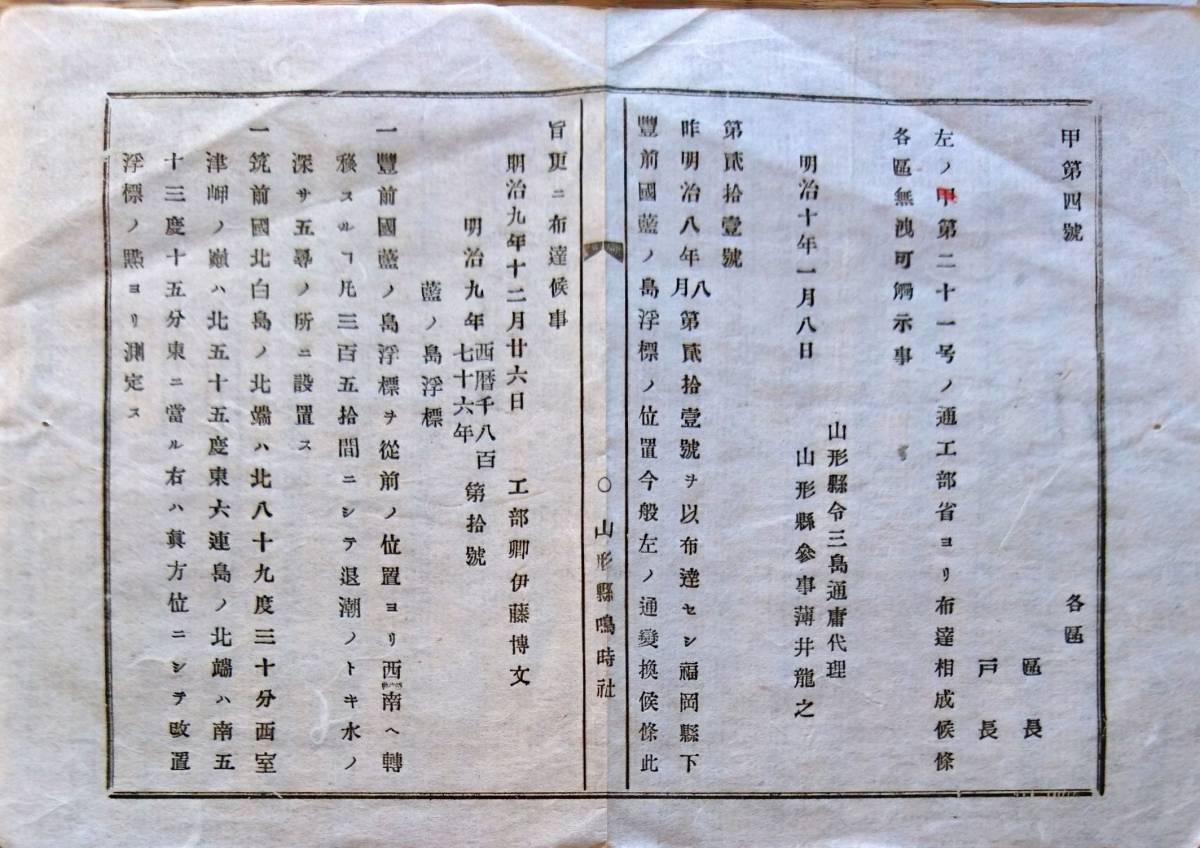 甲第四號
各區
區長
戸長
左ノ甲第二十一号ノ通工部省ヨリ布達相成候條
各區無洩可觸示事
明治十年一月八日
山形縣令三島通庸代理
山形縣參事薄井龍之
第貳拾壹號
昨明治八年八月第貳拾壹號ヲ以布達セシ福岡縣下
豐前國藍ノ島浮標ノ位置今般左ノ通變換候條此
〇山形縣鳴時社
旨更ニ布達候事
明治九年十二月廿六日 工部卿伊藤博文
明治九年西暦千八百七十六年第拾號
藍ノ島浮標
一豐前國藍ノ島浮標ヲ從前ノ位置ヨリ西南ヘ轉
移スルヿ凡三百五拾間ニシテ退潮ノトキ水ノ
深サ五尋ノ所ニ設置ス
一筑前國北白島ノ北端ハ北八十九度三十分西室
津岬ノ嶽ハ北五十五度東六連島ノ北端ハ南五
十三度十五分東ニ當ル右ハ眞方位ニシテ改置
浮標ノ點ヨリ測定ス